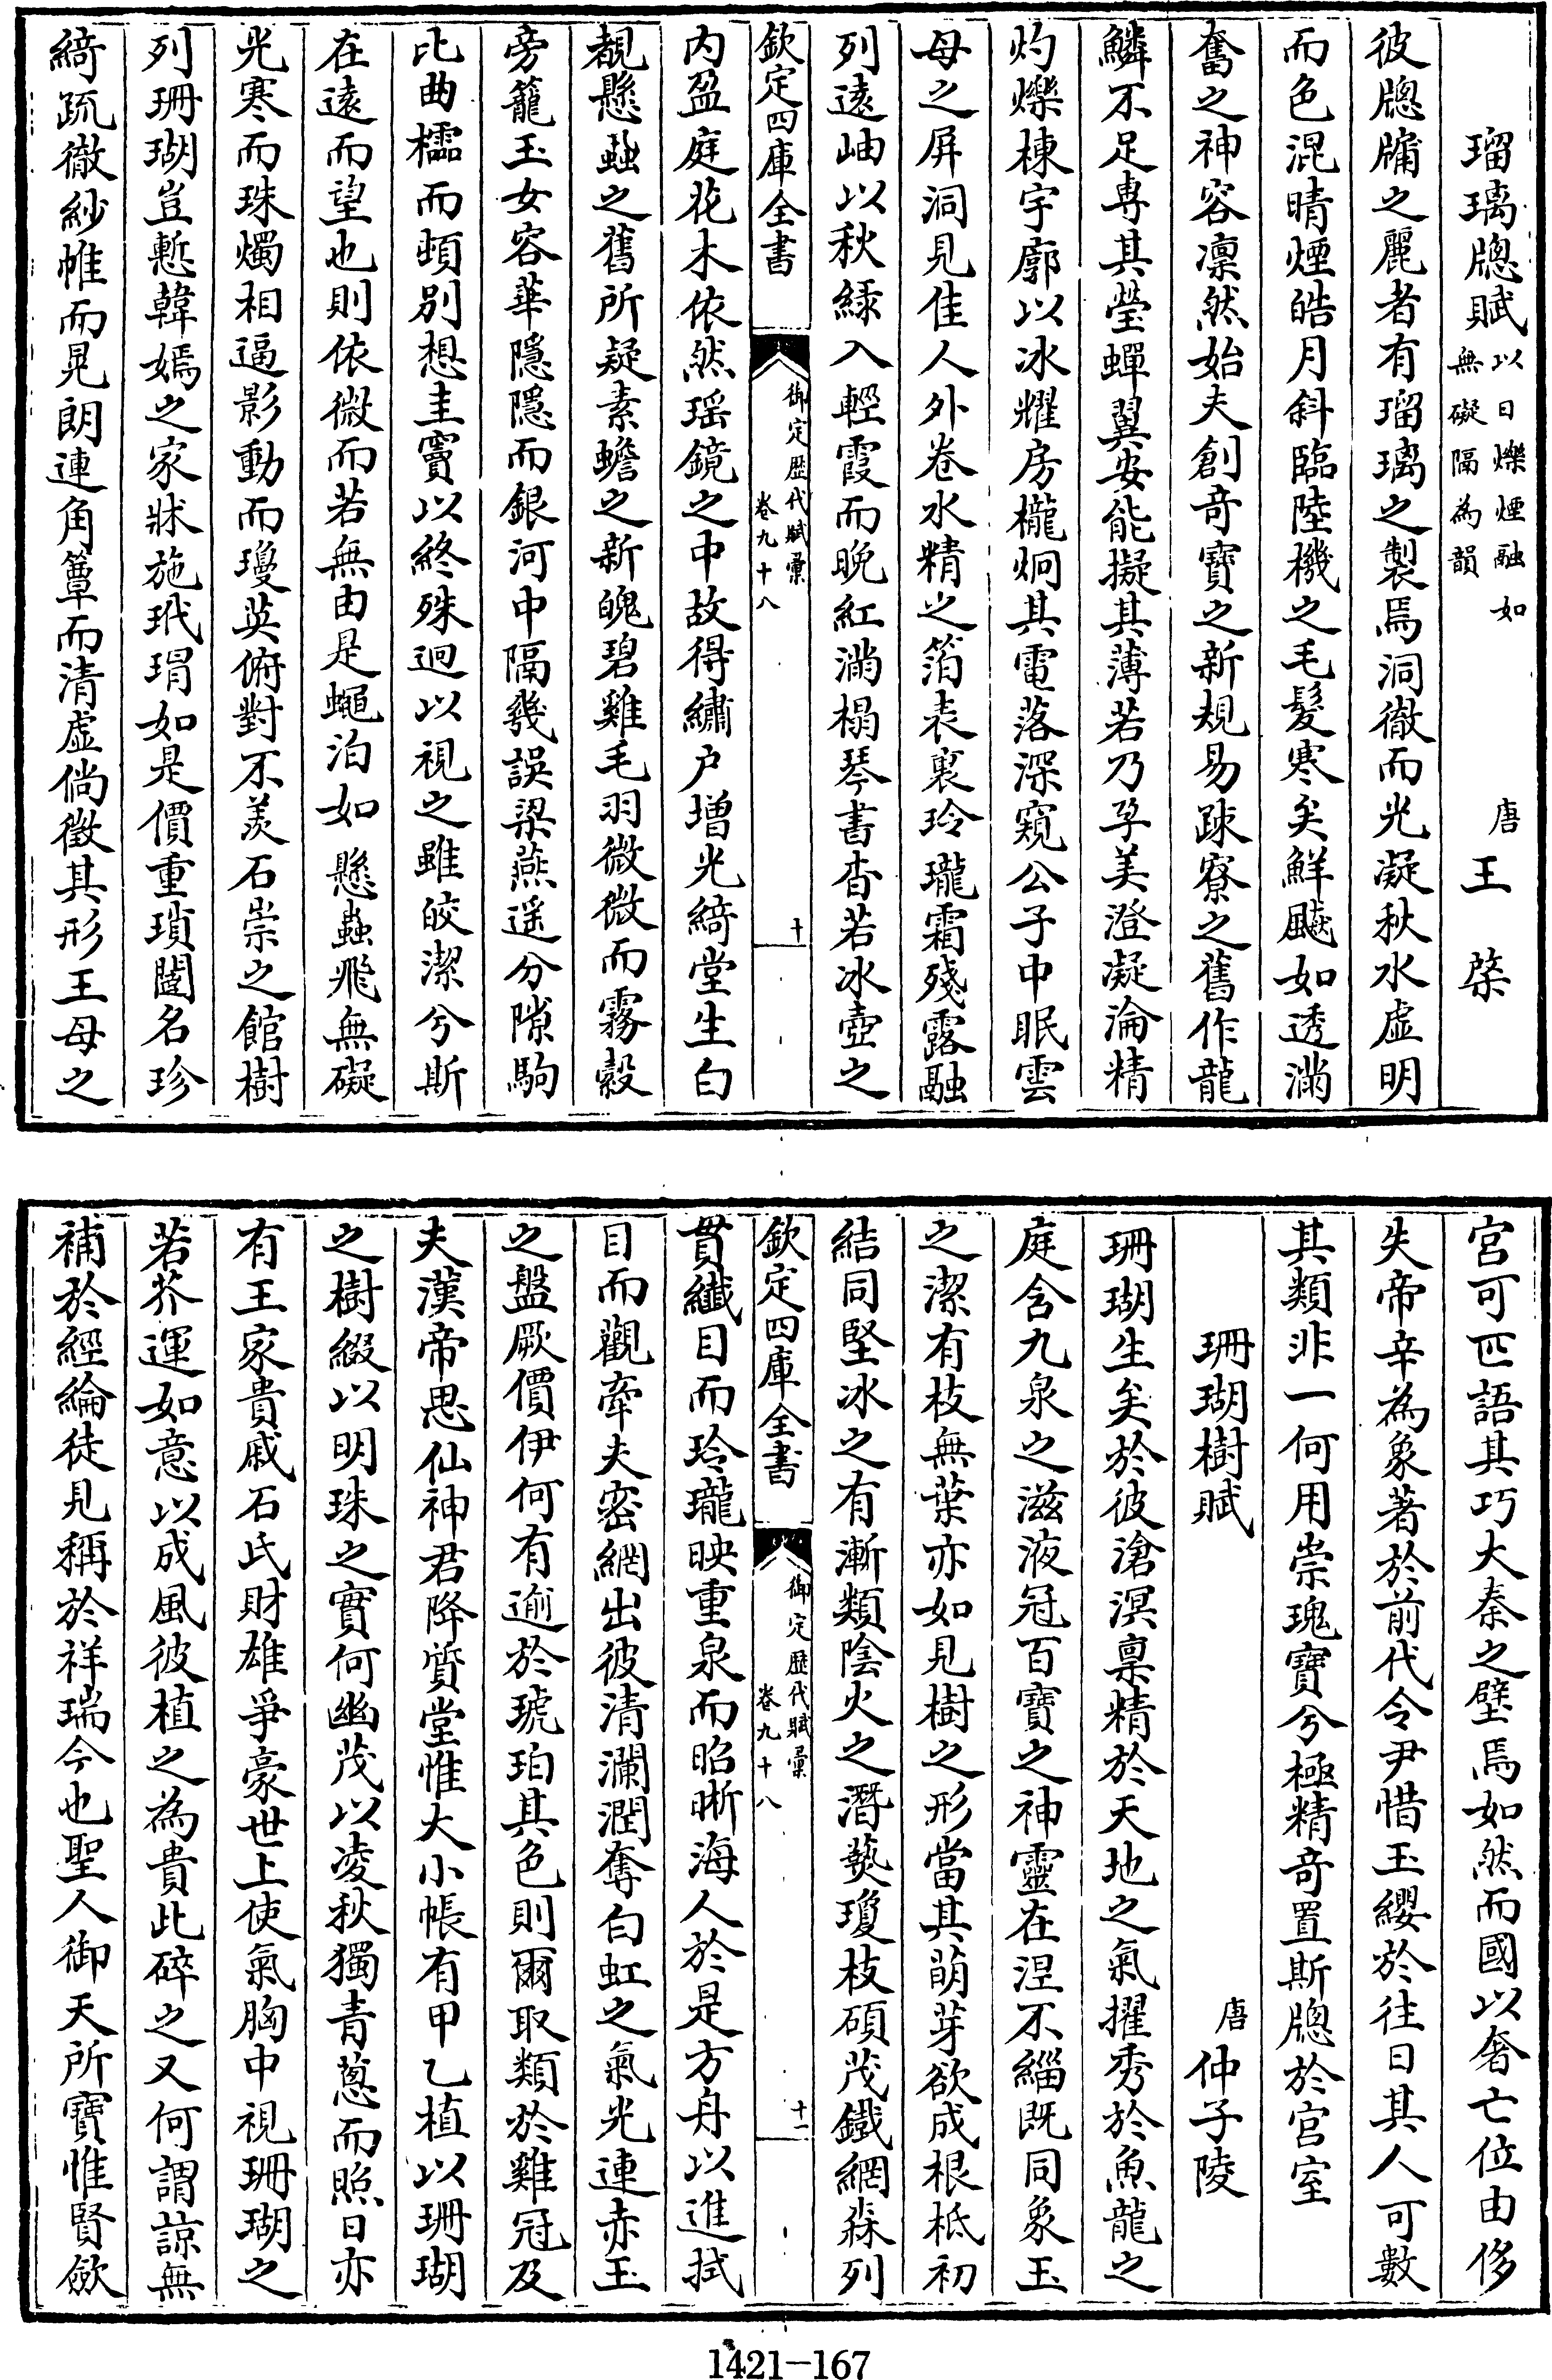 瑠璃牕賦以日爍煙融如無礙隔為韻 唐 王棨
彼牕牖之麗者有瑠璃之製焉洞徹而光凝秋水虚明
而色混晴煙皓月斜臨陸機之毛髮寒矣鮮飈如透滿
奮之神容凛然始夫創奇寶之新規易疎寮之舊作龍
鱗不足專其瑩蟬翼安能擬其薄若乃孕美澄凝淪精
灼爍棟宇廓以冰耀房櫳炯其電落深窺公子中眠雲
母之屏洞見佳人外卷水精之箔表裏玲瓏霜殘露融
列逺岫以秋緑入輕霞而晩紅滿榻琴書杳若冰壺之
欽定四庫全書 御定歴代賦彚 卷九十八 十
内盈庭花木依然瑶鏡之中故得繡户増光綺堂生白
覩懸蝨之舊所疑素蟾之新魄碧雞毛羽微微而霧縠
旁籠玉女容華隱隱而銀河中隔幾誤梁燕遥分隙駒
比曲櫺而頓别想圭竇以終殊迥以視之雖皎潔兮斯
在逺而望也則依微而若無由是蠅泊如懸蟲飛無礙
光寒而珠燭相逼影動而瓊英俯對不羡石崇之館樹
列珊瑚豈慙韓嫣之家牀施玳瑁如是價重瑣闥名珍
綺疏徹紗帷而晃朗連角簟而清虚倘徵其形王母之
宫可匹語其巧大秦之璧焉如然而國以奢亡位由侈
失帝辛為象著於前代令尹惜玉纓於往日其人可數
其類非一何用崇瑰寶兮極精奇置斯牕於宫室
珊瑚樹賦 唐 仲子陵
珊瑚生矣於彼滄溟稟精於天地之氣擢秀於魚龍之
庭含九泉之滋液冠百寶之神靈在涅不緇既同象玉
之潔有枝無葉亦如見樹之形當其萌芽欲成根柢初
結同堅冰之有漸類陰火之潛爇瓊枝碩茂鐵網森列
欽定四庫全書 御定歴代賦彚 卷九十八 十一
貫纖目而玲瓏映重泉而昭晰海人於是方舟以進拭
目而觀牽夫密網出彼清瀾潤奪白虹之氣光連赤玉
之盤厥價伊何有逾於琥珀其色則爾取類於雞冠及
夫漢帝思仙神君降質堂惟大小帳有甲乙植以珊瑚
之樹綴以明珠之實何幽茂以凌秋獨青葱而照日亦
有王家貴戚石氏財雄爭豪世上使氣胸中視珊瑚之
若芥運如意以成風彼植之為貴此碎之又何謂諒無
補於經綸徒見稱於祥瑞今也聖人御天所寶惟賢斂
1421—167